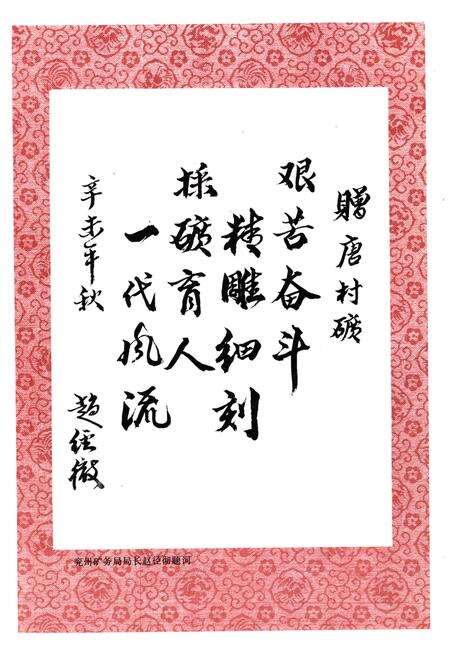 贈唐村礦
艰苦奋斗
精雕细刻
採礦育人
一代风流
辛未年秋
趙经徹
兖州矿务局局长赵经彻题词